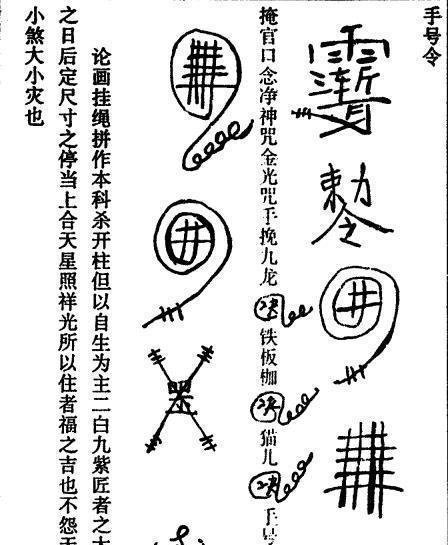 手号令
勅令
掩官口念净神咒金光咒手挽九龙 铁板枷 猫儿 手号
论画挂绳拼作本科杀开柱但以自生为主二白九紫匠者之大
之日后定尺寸之停当上合天星照祥光所以住者福之吉也不怨天
小煞大小灾也